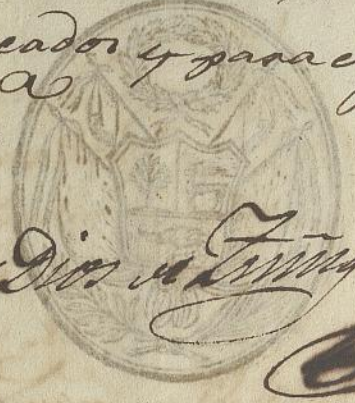 eador y para e
a
Dios de Zuñig